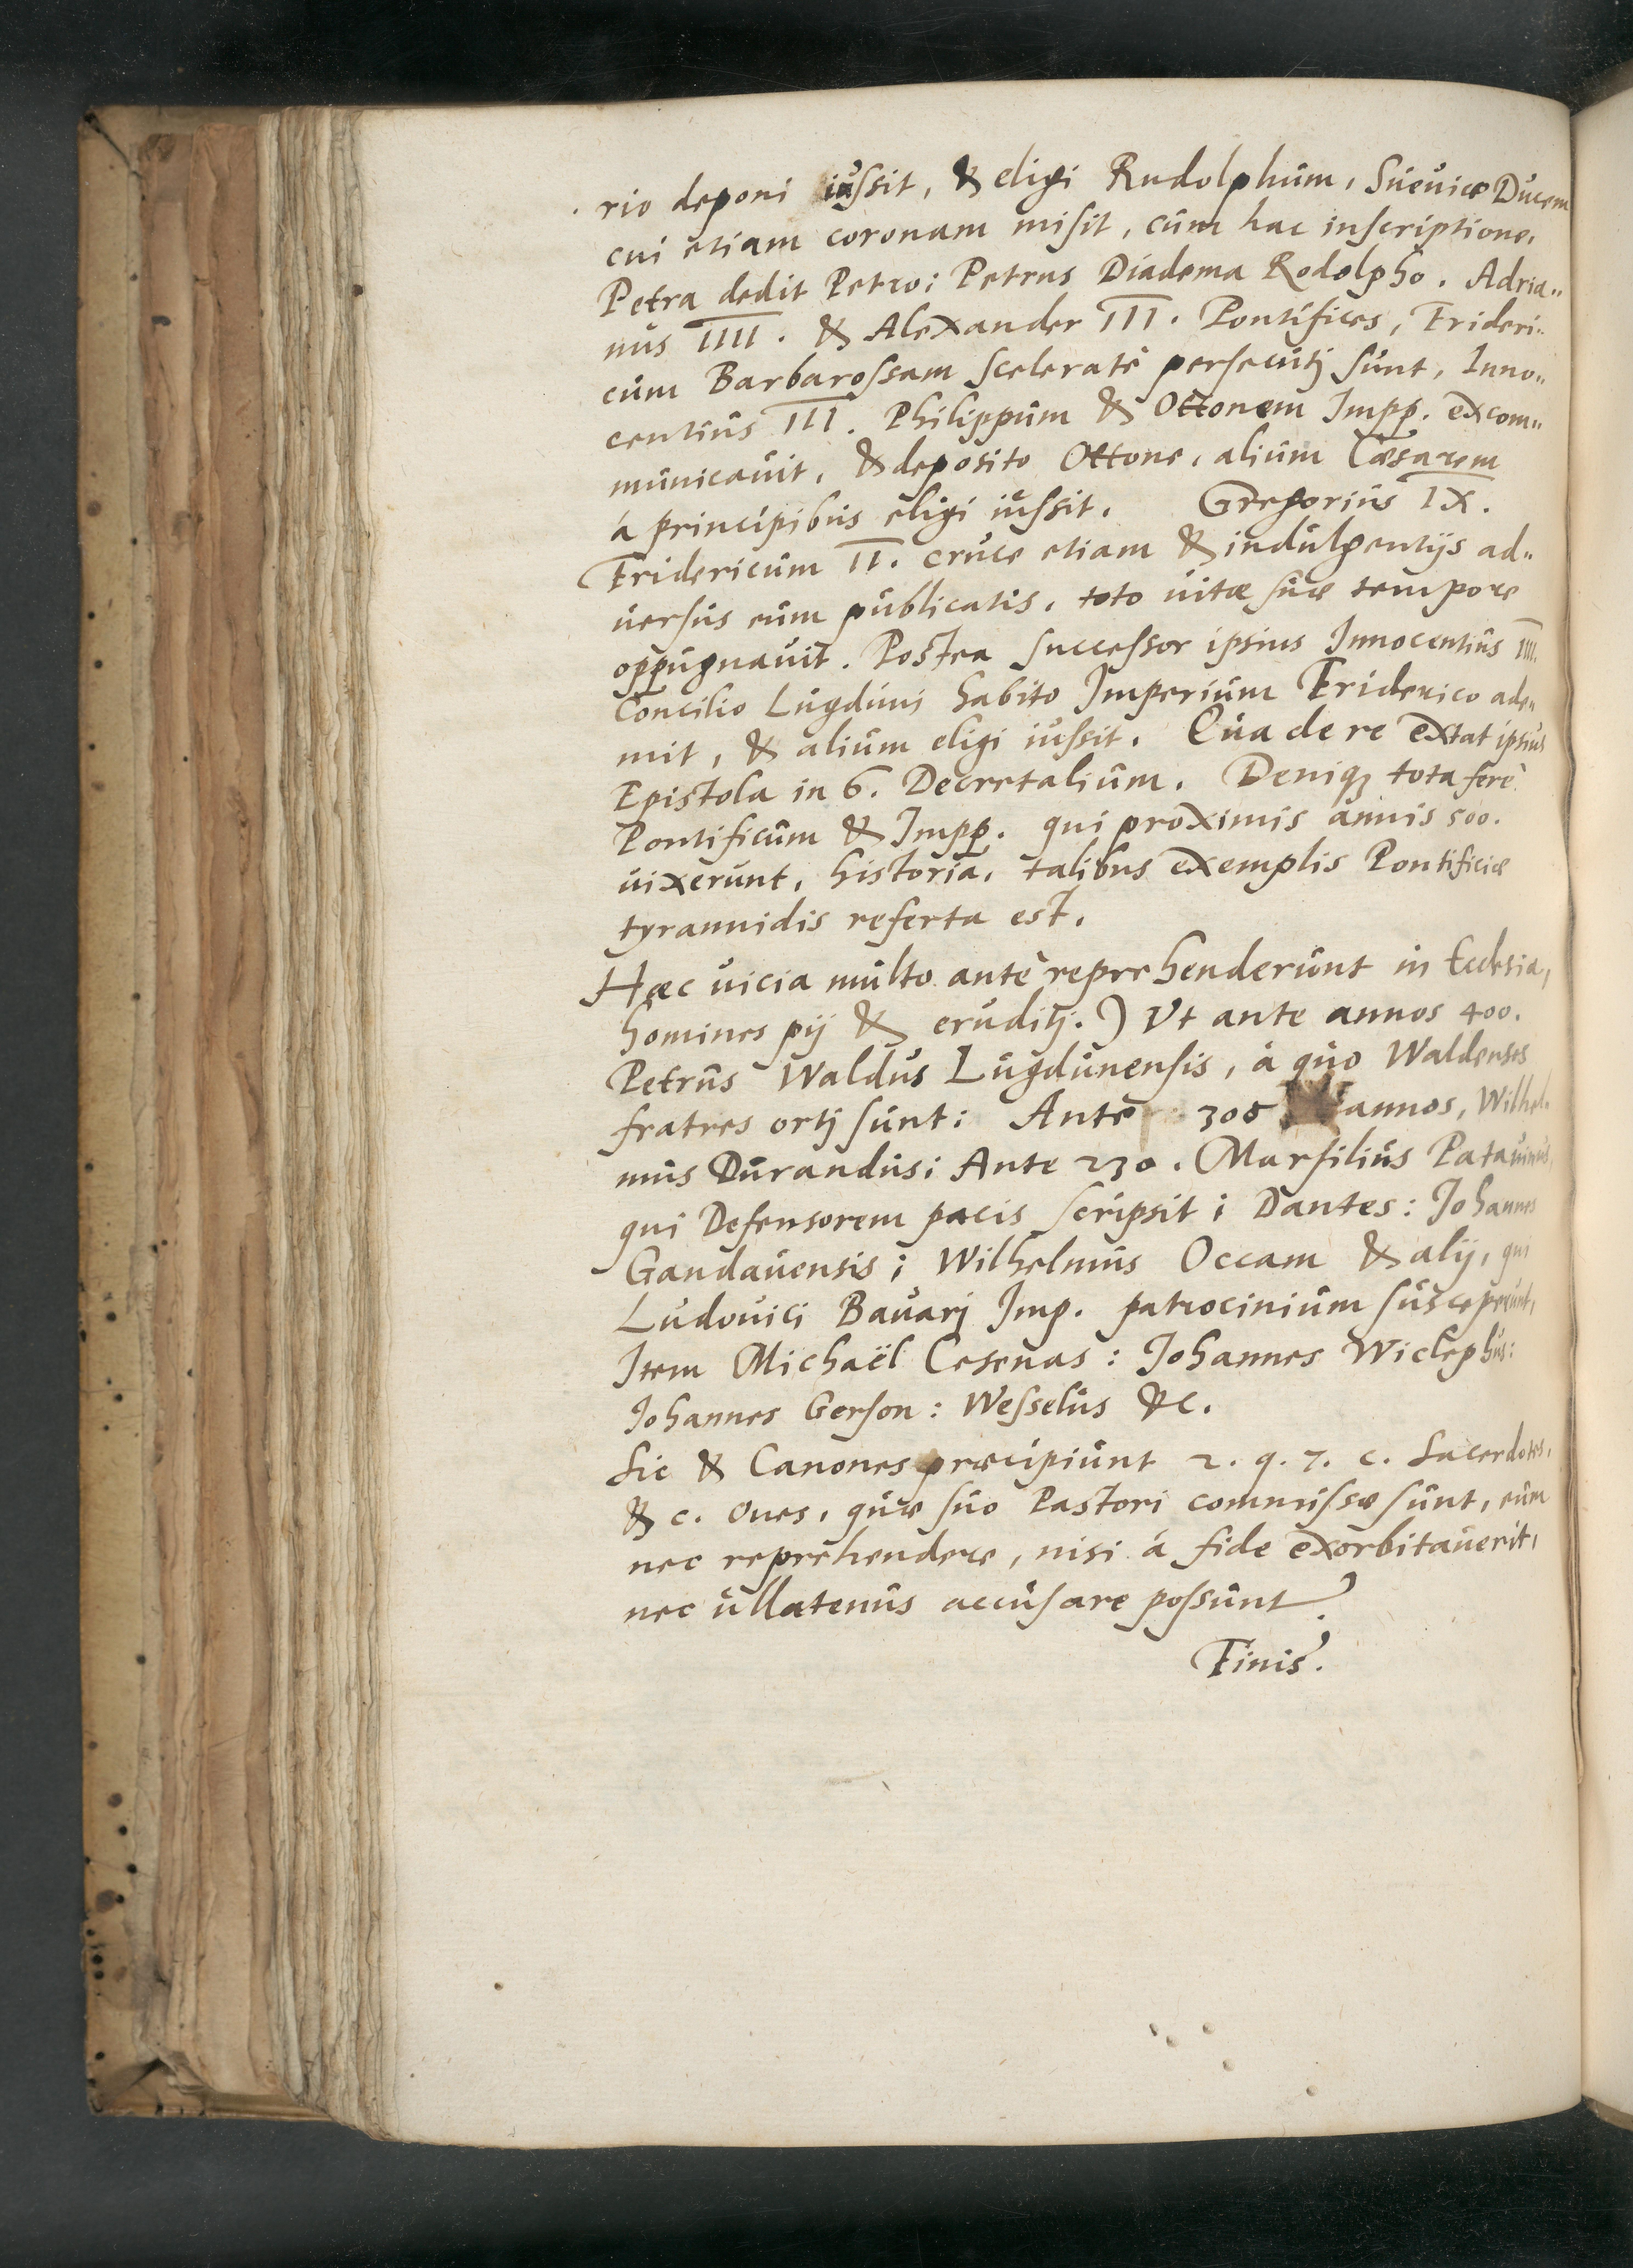 rio deponi iussit, & eligi Rudolphum, Sueuiæ Ducem
cui etiam coronam misit, cum hac inscriptione,
Petra dedit Petro: Petrus Diadema Rodolpho. Adria„
nus IIII. & Alexander III. Pontifices, Frideri„
cum Barbarossam sceleratè persecutj sunt, Inno„
centius III. Philippum & Ottonem Impp. excom„
municauit, & deposito Ottone, alium Cæsarem
á principibus eligi iussit. Gregorius IX.
Fridericum II. cruce etiam & indulgentijs ad„
uersus eum publicatis, toto uitæ suæ tempore
oppugnauit. Postea successor ipsius Innocentius IIII.
Concilio Lugduni habito Imperium Friderico ade„
mit, & alium eligi iussit. Qua de re extat ipsius
Epistola in 6. Decretalium. Deniq; tota ferè
Pontificum & Impp. qui proximis annis 500.
uixerunt, historia, talibus exemplis Pontificiæ
tyrannidis referta est.
Hæc uicia multo antè reprehenderunt in Ecclesia,
homines pij & eruditj.) Vt ante annos 400.
Petrus Waldus Lugdunensis, à quo Waldenses
fratres ortj sunt: Ante 300 annos, Wilhel„
mus Durandus: Ante 230. Marsilius Patauinus,
qui Defensorem pacis scripsit: Dantes: Johannes
Gandauensis: Wilhelmus Occam & alij, qui
Ludouici Bauarj Imp. patrocinium susceperunt,
Item Michaël Cesenas: Johannes Wiclephus:
Johannes Gerson: Wesselus &c.
Sic & Canones præcipiunt 2. q. 7. c. Sacerdotes,
& c. Oues, quæ suo Pastori commissæ sunt, eum
nec reprehendere, nisi á fide exorbitauerit,
nec ullatenus accusare possunt.
Finis.